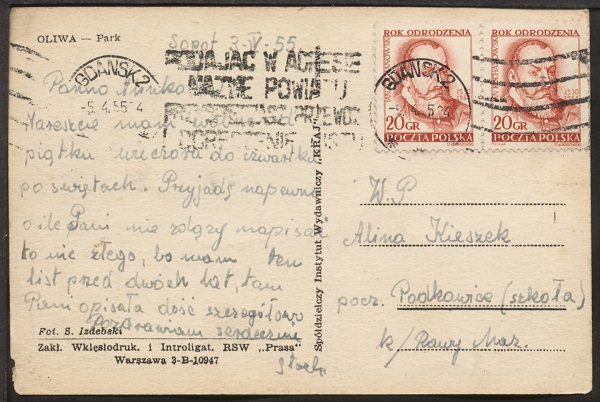 OLIWA — Park
Sopot 3-IV-55
GDAŃSK 2
-5.4.55-24
PODAJĄC W ADRESIE
NAZWĘ POWIATU
Panno Ninko
Nareszcie mam wolne od
piątku wieczora do czwartku
po świętach. Przyjadę napewno
o ile Pani nie zdąży napisać
to nic złego, bo mam ten
list przed dwóch lat, tam
Pani opisała dość szczegółowo
Pozdrawiam serdecznie
Stach
Fot. S. Izdebski
Zakł. Wklęsłodruk. i Introligat. RSW „Prasa"
Warszawa 3-B-10947
Spółdzielczy Instytut Wydawniczy „KRAJ
ROK ODRODZENIA
JAN KOCHANOWSKI
1530
20 GR
POCZTA POLSKA
ROK ODRODZENIA
JAN KOCHANOWSKI
1530
20 GR
POCZTA POLSKA
GDAŃSK 2
W.P
Alina Kieszek
pocz. Podkowice (szkoła)
k/ Rawy Maz.